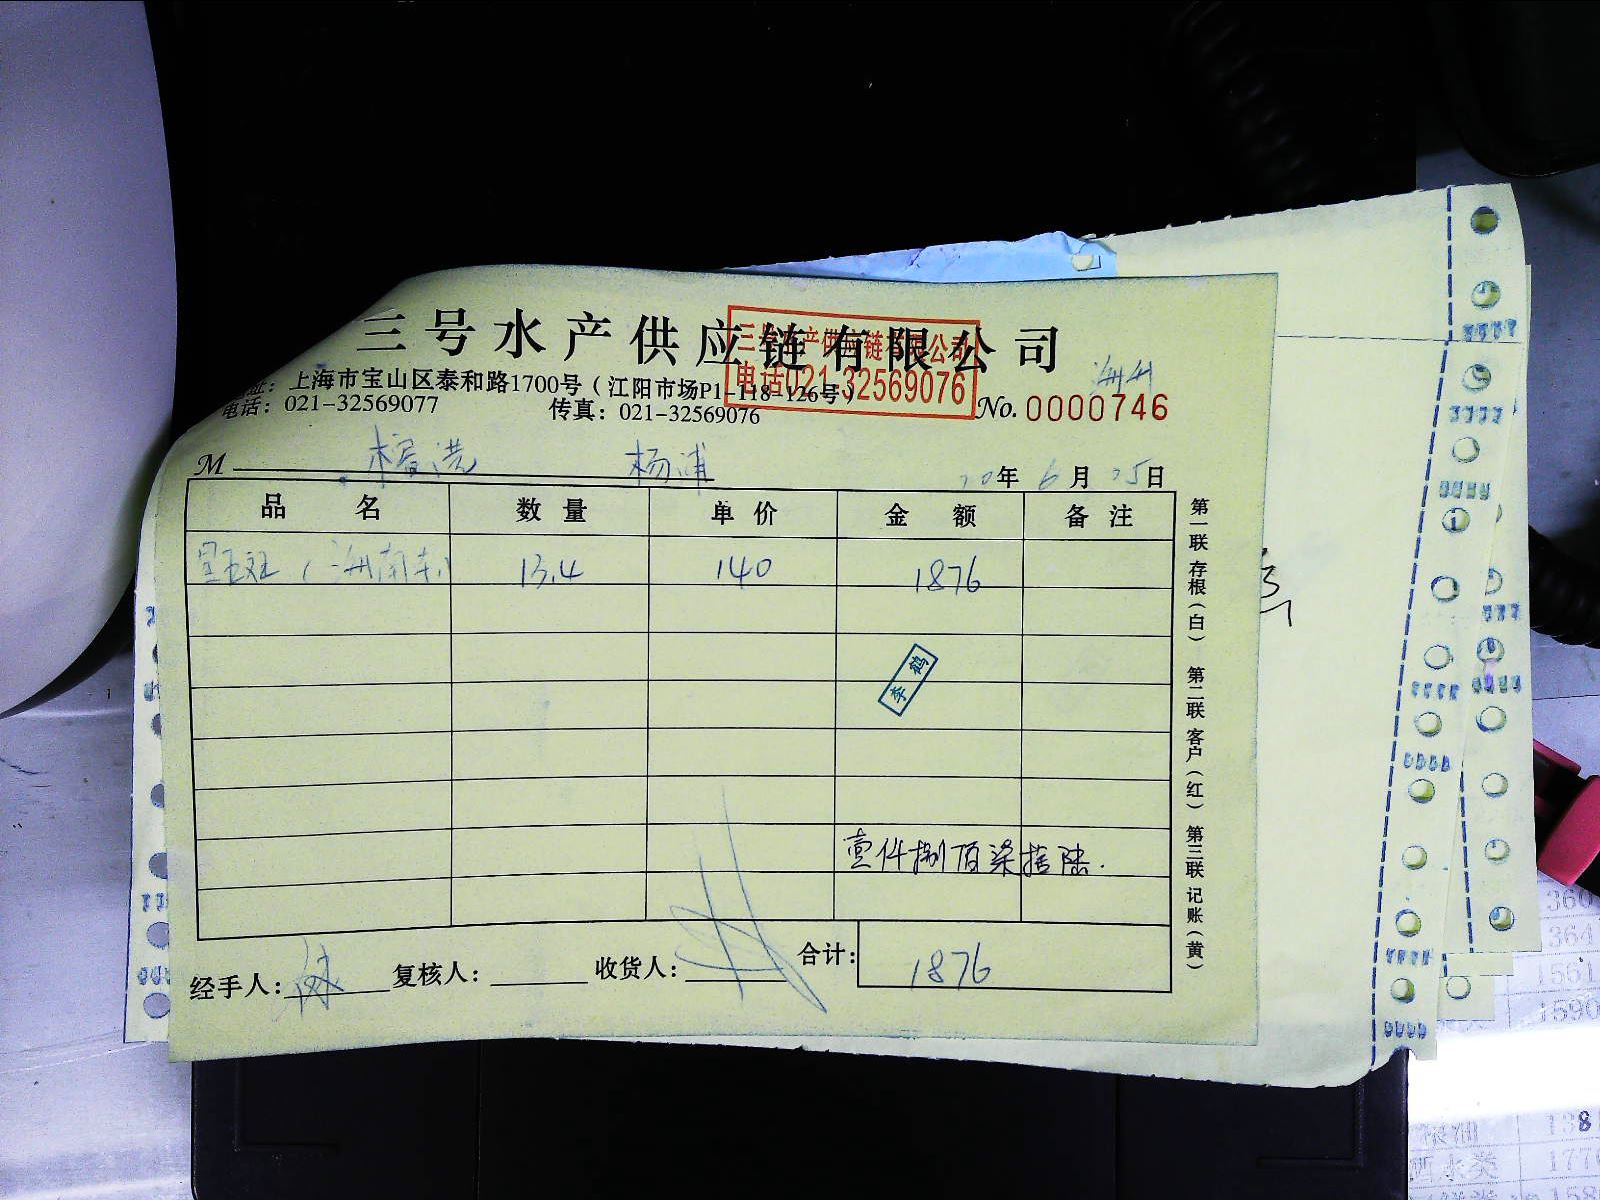 三号水产供应链有限公司
三号水产供应链有限公司
电话021-32569076
址：上海市宝山区泰和路1700号（江阳市场P1-118-126号）
电话：021-32569077 传真：021-32569076
No. 0000746
M 杨浦 20年6月25日
品名 数量 单价 金额 备注
13.4 140 1876
李鹤
壹仟捌佰柒拾陆
经手人： 复核人： 收货人： 合计： 1876
第一联 存根（白） 第二联 客户（红） 第三联 记账（黄）